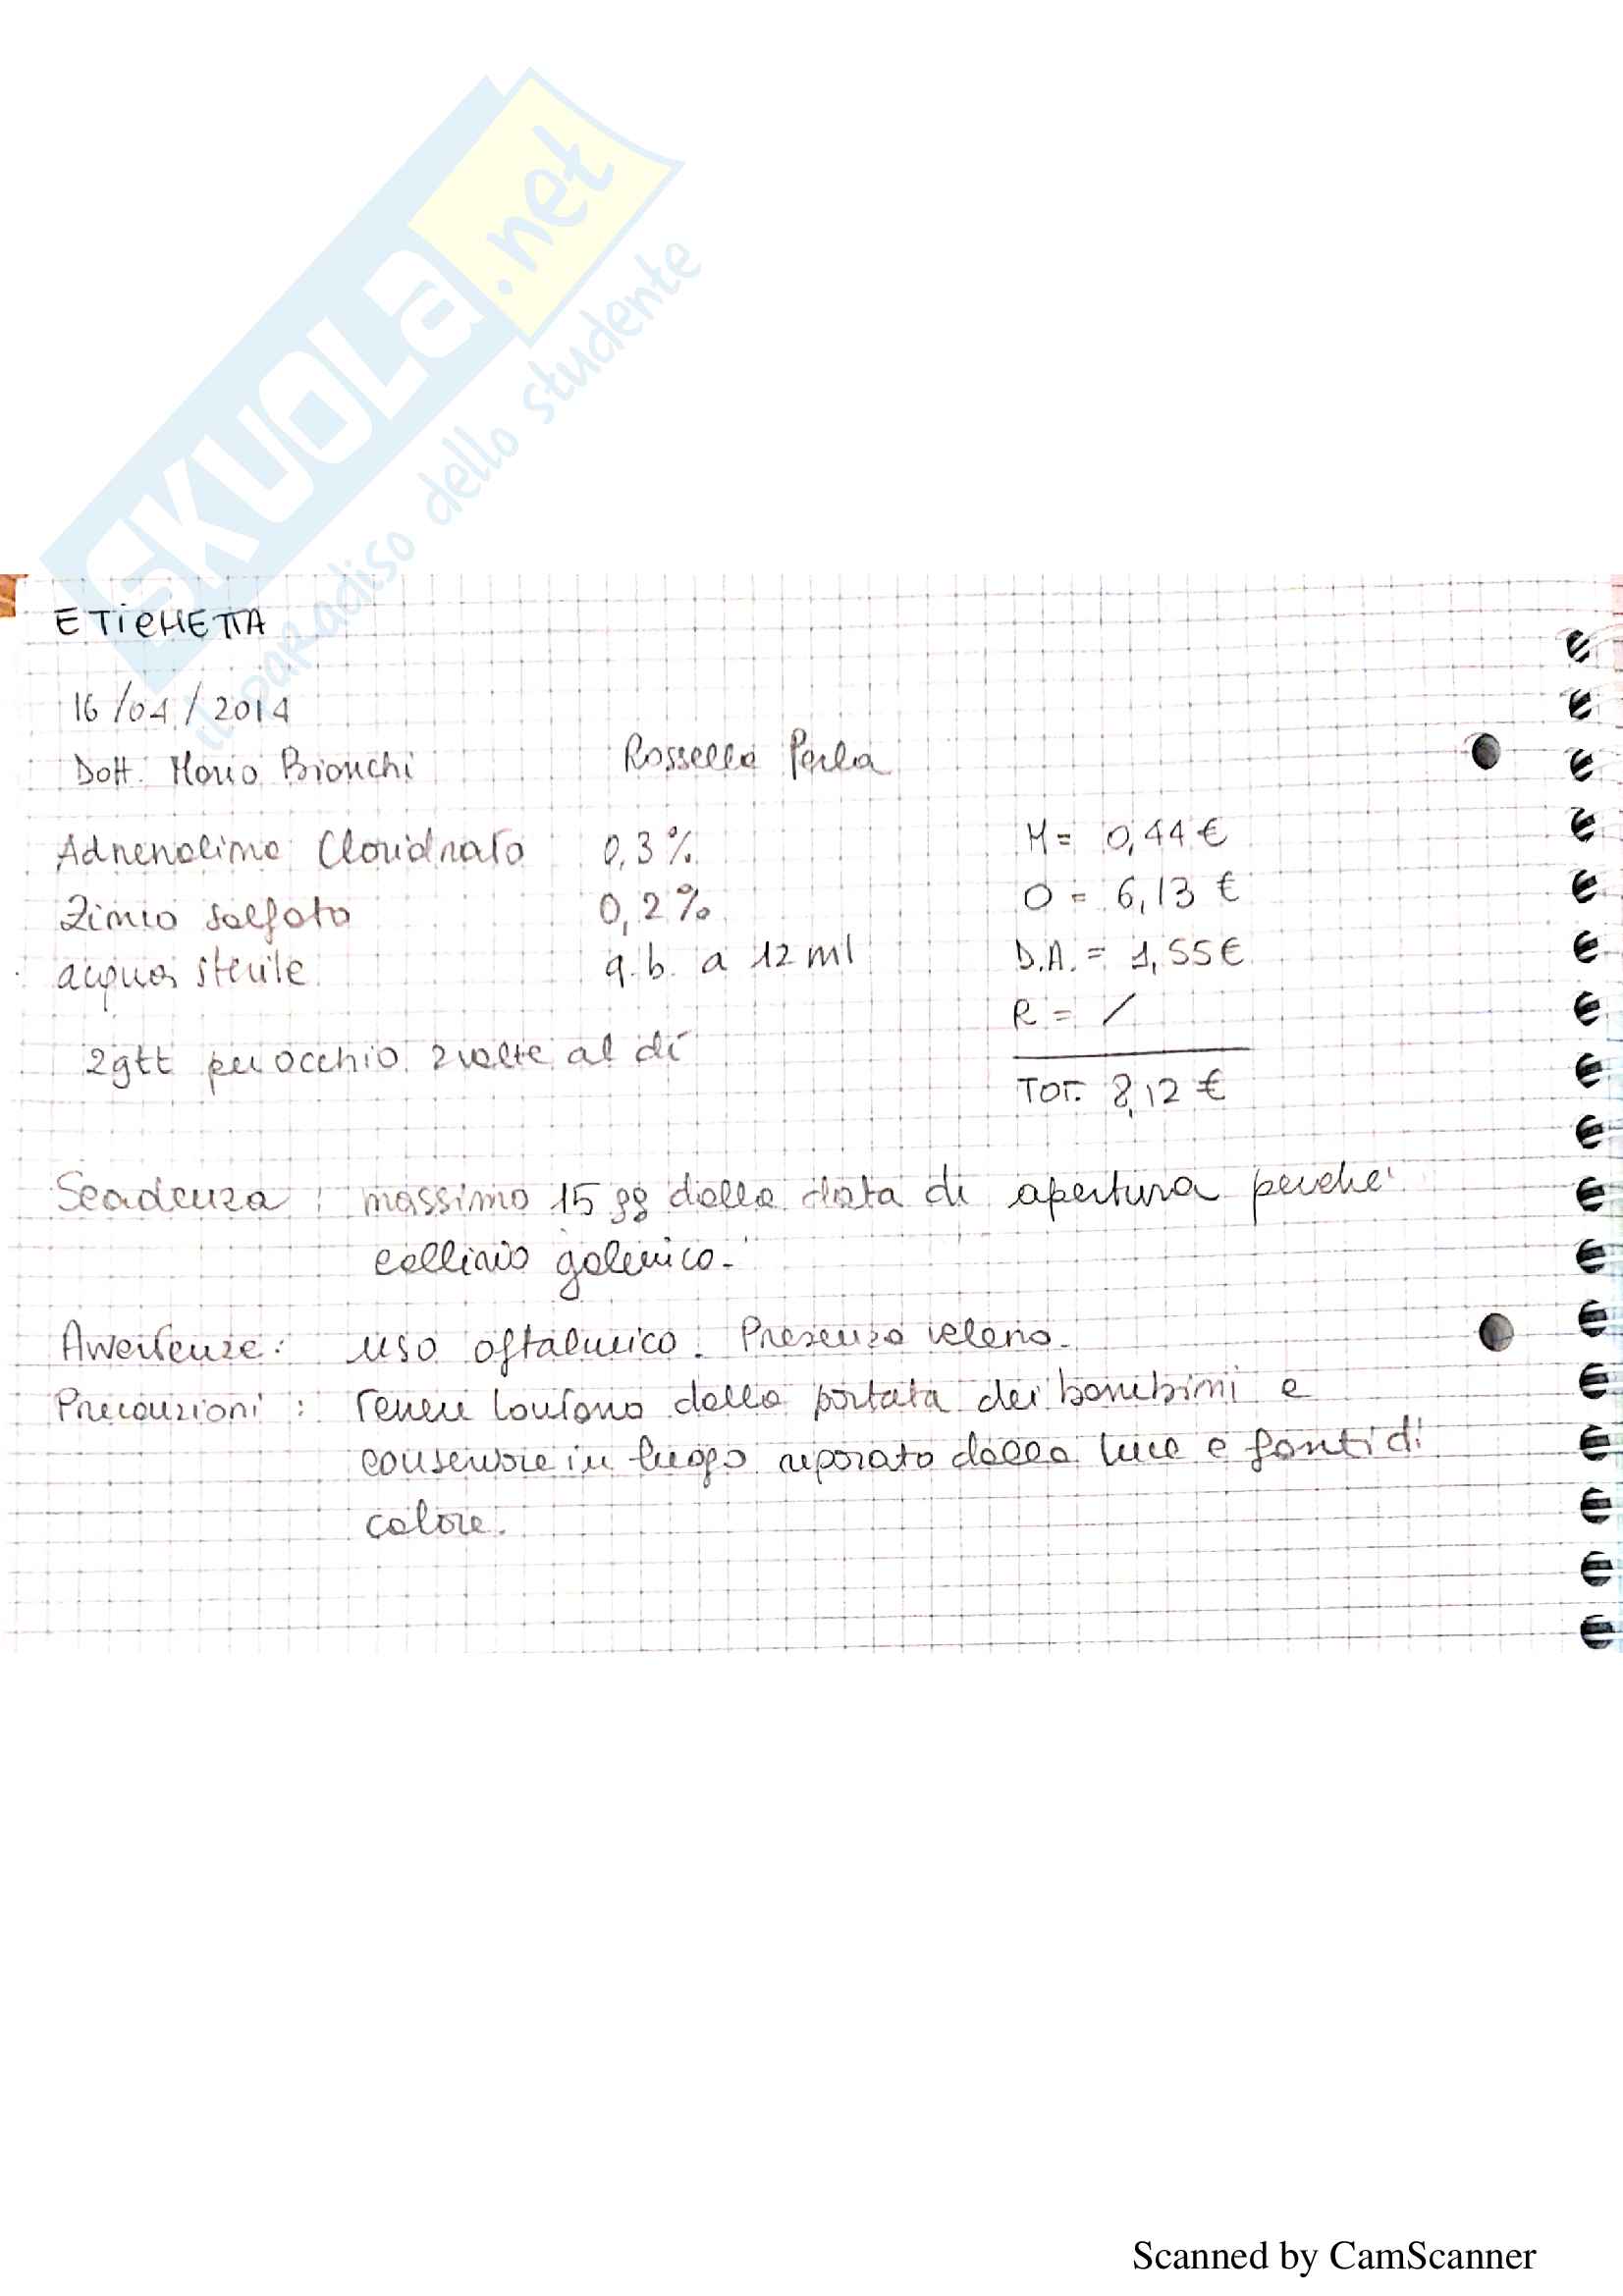 SKUOLa.net
il paradiso dello studente
ETICHETTA
16/04/2014
Dott. Mario Bianchi Rossella Perla
Adrenalina Cloridrato 0,3% M = 0,44 €
Zinco solfato 0,2% O = 6,13 €
acqua sterile q.b. a 12 ml D.A. = 1,55 €
R = /
2gtt per occhio 2 volte al dì
TOT. 8,12 €
Scadenza : massimo 15 gg dalla data di apertura perché
collirio galenico.
Avvertenze: uso oftalmico. Presenza veleno.
Precauzioni : Tenere lontano dalla portata dei bambini e
conservare in luogo riparato dalla luce e fonti di
calore.
Scanned by CamScanner